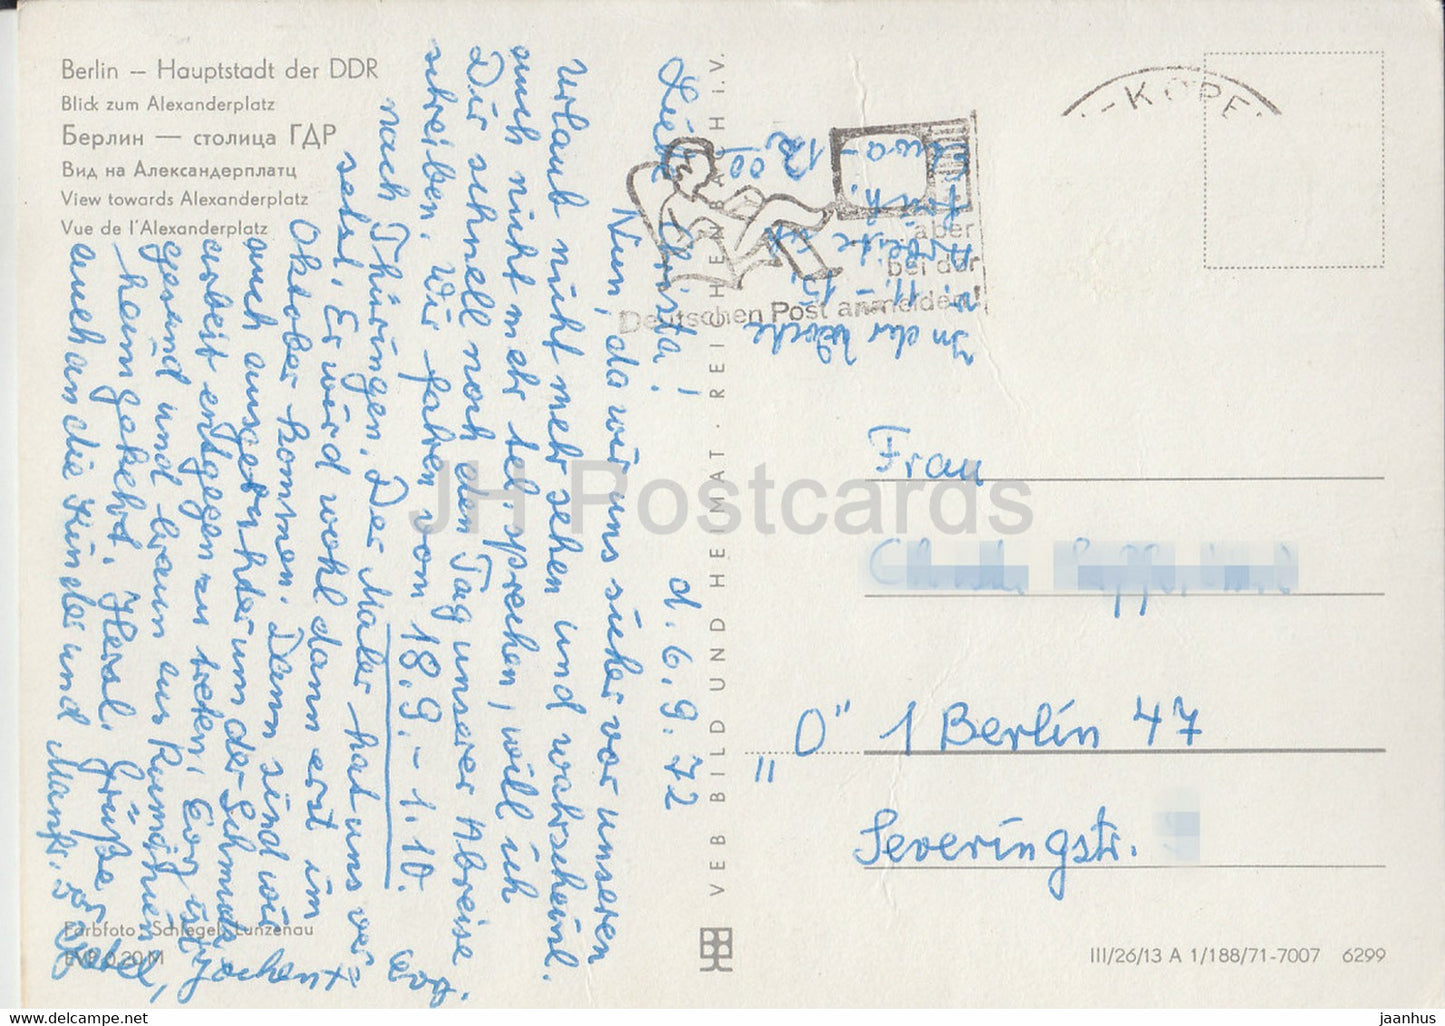 Berlin – Hauptstadt der DDR
Blick zum Alexanderplatz
Берлин — столица ГДР
Вид на Александерплатц
View towards Alexanderplatz
Vue de l'Alexanderplatz
Liebe Christa! d. 6.9.72
Nun, da wir uns sicher vor unseren
Urlaub nicht mehr sehen und wahrscheinl.
auch nicht mehr tel. sprechen, will ich
Dir schnell noch den Tag unserer Abreise
schreiben. Wir fahren vom 18.9. – 1.10.
nach Thüringen. Der Maler hat uns ver-
setzt. Er wird wohl dann erst im
Oktober kommen. Dann sind wir
auch ausgeruhter um der Schmutz
arbeit entgegen zu treten. Evy ist
gesund und braun aus Rumänien
heimgekehrt. Herzl. Grüße
auch an die Kinder und
In der Woche
v. 11. – 15.
Arbeite
12.00
aber
bei der
Deutschen Post anmelden!
-KÖPE
VEB BILD UND HEIMAT · REICHENBACH I. V.
Frau
"O" 1 Berlin 47
Severingstr.
Farbfoto: Schlegel, Lunzenau
EVP 0,20 M
III/26/13 A 1/188/71-7007 6299
JH Postcards
eBay
jaanhus